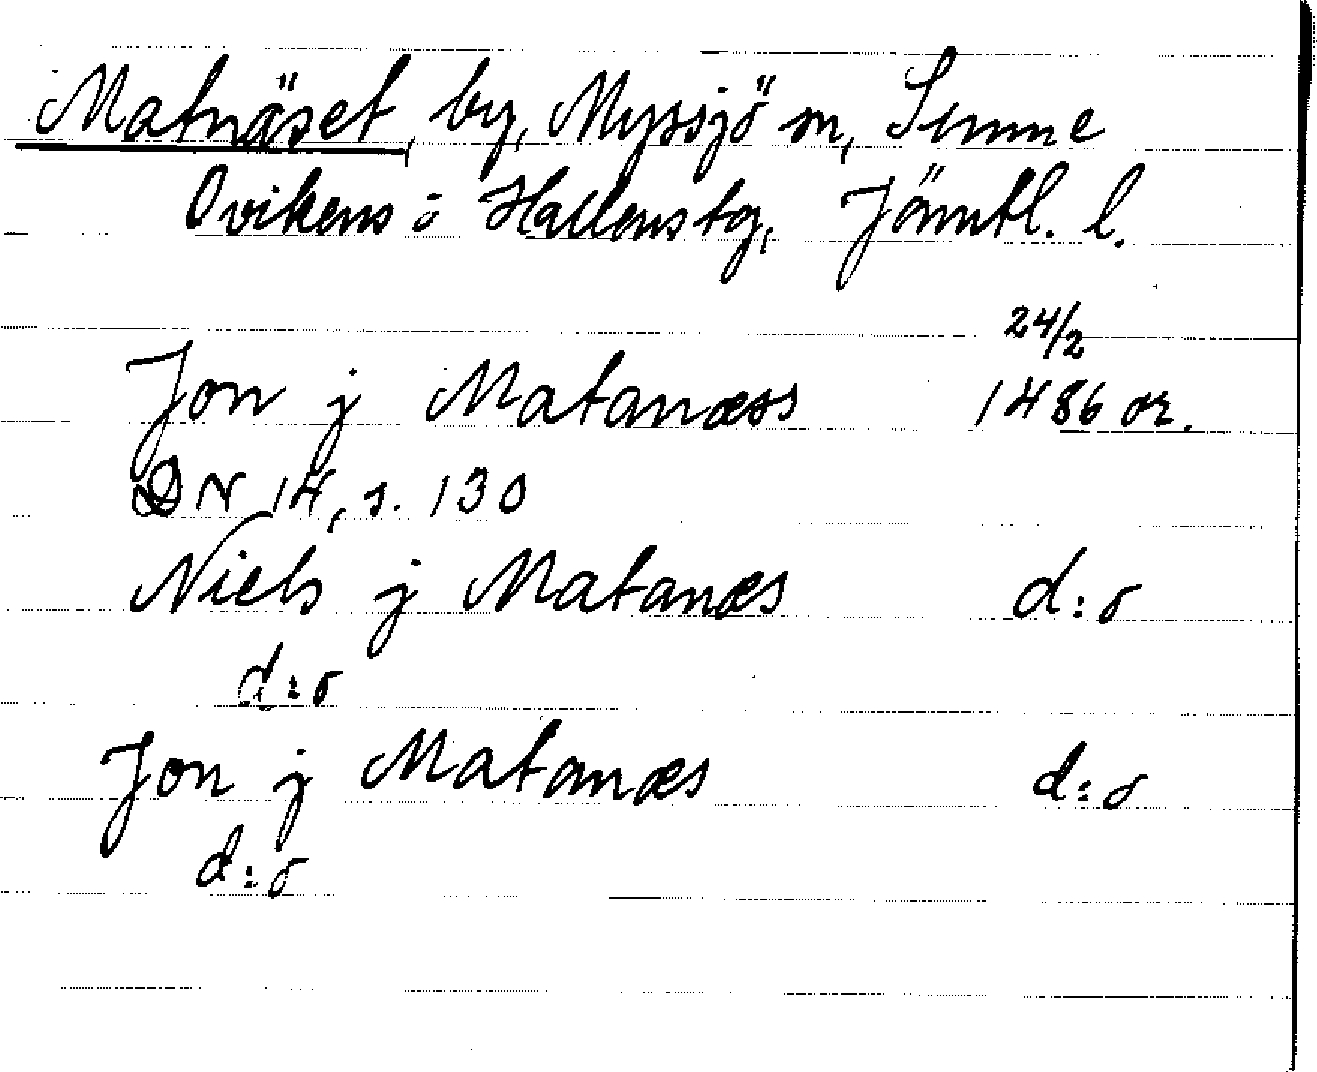 Matnäset, by, Myssjö sn, Sunne
Ovikens o Hallens tg, Jämtl. l.
24/2
Jon j Matanæss 1486 or.
DN 14, s. 130
Niels j Matanæs d:o
d:o
Jon j Matanæs d:o
d:o